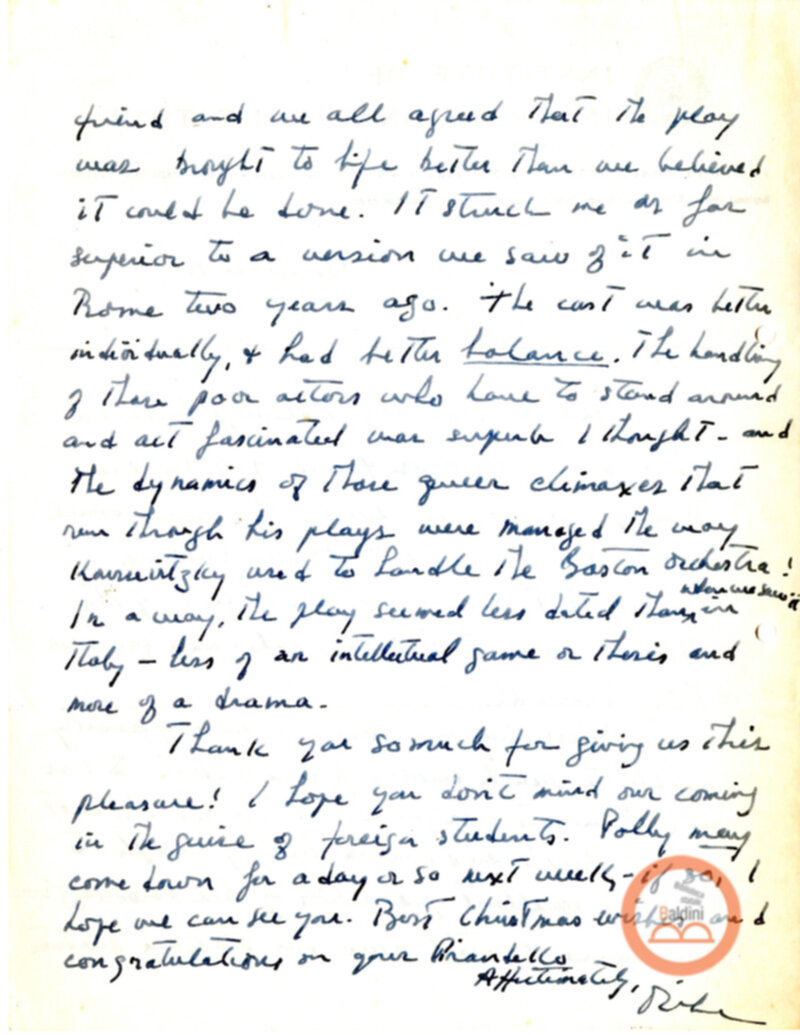 friend and we all agreed that the play
was brought to life better than we believed
it could be done. It struck me as far
superior to a version we saw of it in
Rome two years ago. The cast was better
individually, & had better balance. The handling
of those poor actors who have to stand around
and act fascinated was superb I thought - and
the dynamics of those queer climaxes that
run through his plays were managed the way
Koussevitzky used to handle the Boston Orchestra!
In a way, the play seemed less dated than when we saw it in
Italy - less of an intellectual game or thesis and
more of a drama.
Thank you so much for giving us this
pleasure! I hope you don't mind our coming
in the guise of foreign students. Polly may
come down for a day or so next week - if so, I
hope we can see you. Best Christmas wishes and
congratulations on your Pirandello
Affectionately,
Biblioteca
statale
Baldini